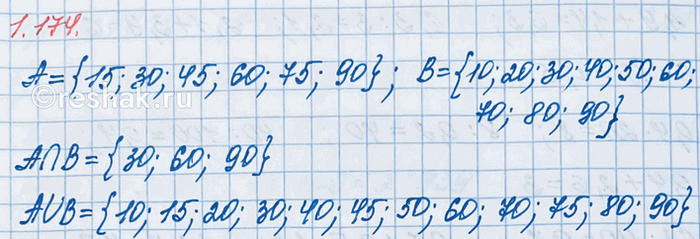 1.174.
A={15; 30; 45; 60; 75; 90}; B={10; 20; 30; 40; 50; 60;
70; 80; 90}
©reshak.ru
A∩B={30; 60; 90}
A∪B={10; 15; 20; 30; 40; 45; 50; 60; 70; 75; 80; 90}